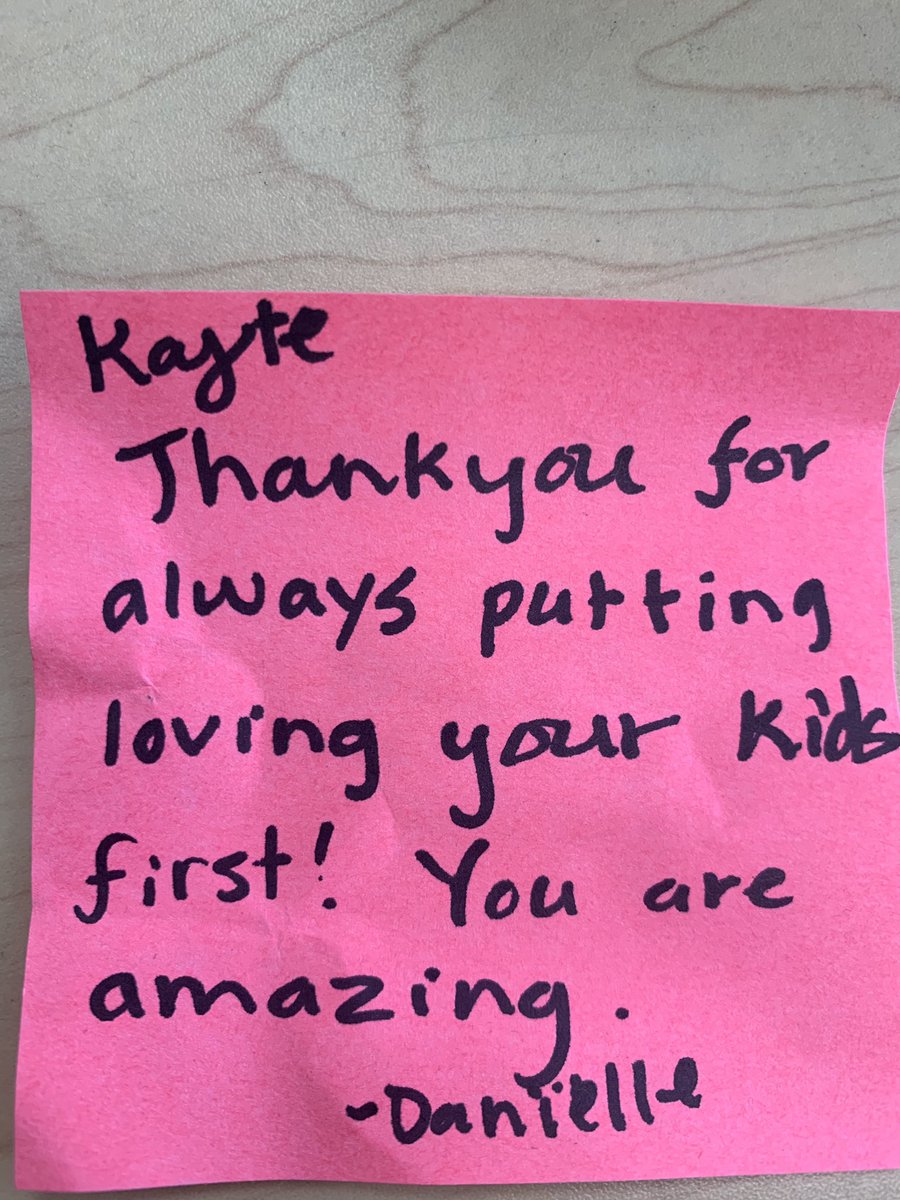 Kayte
Thankyou for
always putting
loving your kids
first! You are
amazing.
-Danielle